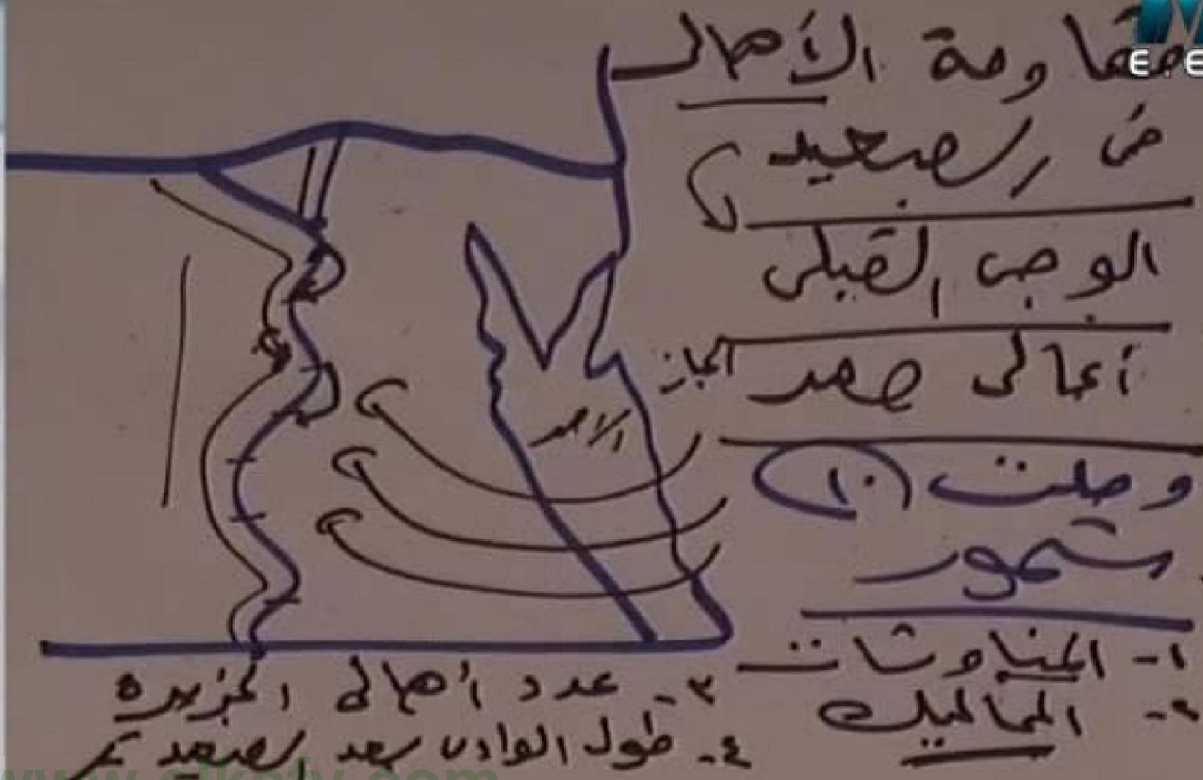 مقاومة الأهالى
فى الصعيد
الوجه القبلى
أعالى مصر
الحجاز
الاحمر
وصلت (١٠)
شهور
١- المناوشات
٢- المماليك
٣- عدد أهالى الجزيرة
٤- طول الوادى بعد الصعيد